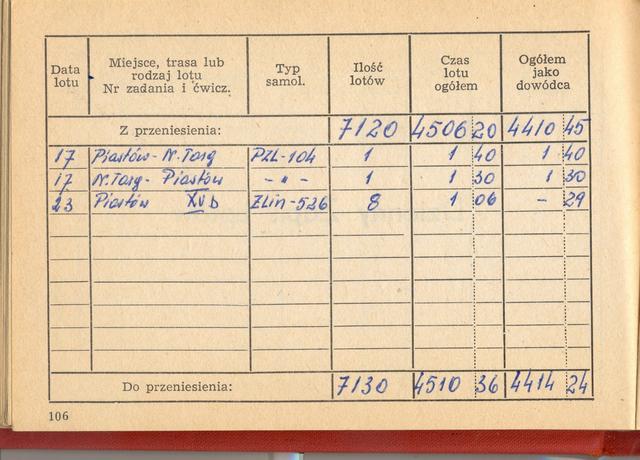 Data lotu | Miejsce, trasa lub rodzaj lotu Nr zadania i ćwicz. | Typ samol. | Ilość lotów | Czas lotu ogółem | Ogółem jako dowódca
Z przeniesienia: 7120 4506 20 4410 45
17 Piastów - N.Targ PZL-104 1 1 40 1 40
17 N.Targ - Piastów - „ - 1 1 30 1 30
23 Piastów XV b Zlin-526 8 1 06 - 29
Do przeniesienia: 7130 4510 36 4414 24
106